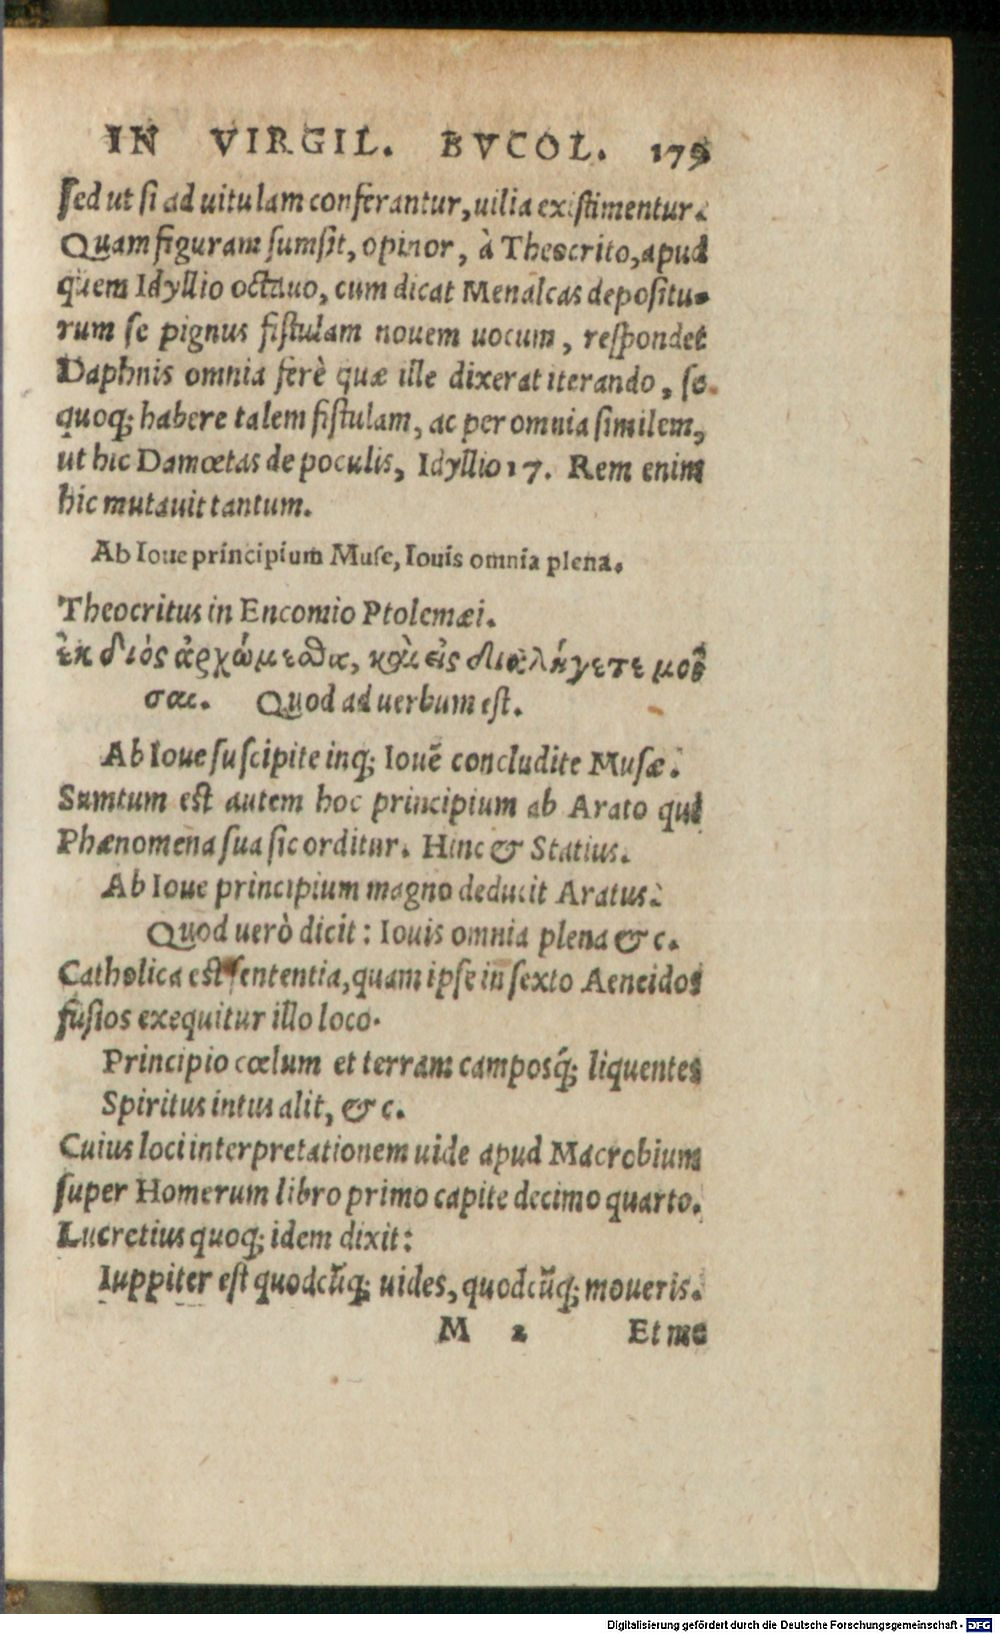 IN VIRGIL. BVCOL. 179
sed ut si ad uitulam conferantur, uilia existimentur.
Quam figuram sumsit, opinor, à Theocrito, apud
quem Idyllio octauo, cum dicat Menalcas depositu-
rum se pignus fistulam nouem uocum, respondet
Daphnis omnia ferè quæ ille dixerat iterando, se
quoq; habere talem fistulam, ac per omnia similem,
ut hic Damœtas de poculis, Idyllio 17. Rem enim
hic mutauit tantum.
Ab Ioue principium Muse, Iouis omnia plena.
Theocritus in Encomio Ptolemæi.
ἐκ διὸς ἀρχώμεσθα, καὶ εἰς δία λήγετε μοῦ
σαι. Quod ad uerbum est.
Ab Ioue suscipite inq; Iouē concludite Musæ.
Sumtum est autem hoc principium ab Arato qui
Phænomena sua sic orditur. Hinc & Statius.
Ab Ioue principium magno deducit Aratus.
Quod uerò dicit: Iouis omnia plena &c.
Catholica est sententia, quam ipse in sexto Aeneidos
fusios exequitur illo loco.
Principio cœlum et terram camposq́; liquentes
Spiritus intus alit, &c.
Cuius loci interpretationem uide apud Macrobium
super Homerum libro primo capite decimo quarto.
Lucretius quoq; idem dixit:
Iuppiter est quodcūq; uides, quodcūq; moueris.
M 2 Et me
Digitalisierung gefördert durch die Deutsche Forschungsgemeinschaft - DFG